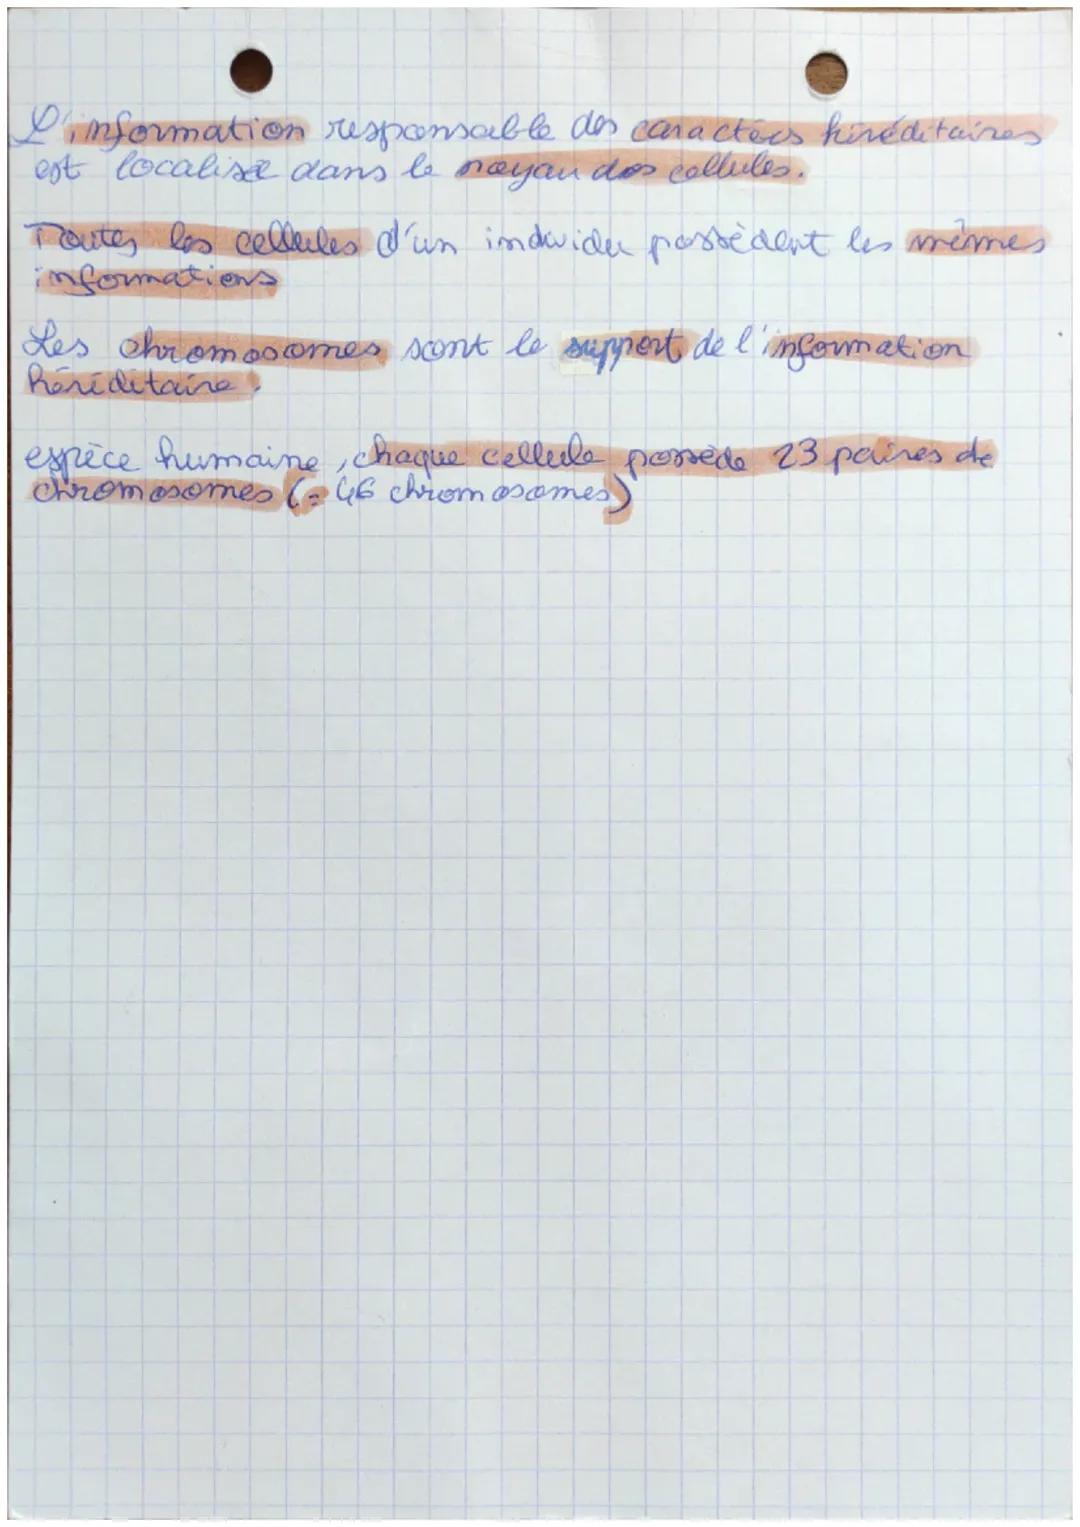 L'information responsable des caractères héréditaires
est localisé dans le noyau des cellules.
Toutes les cellules d'un individu possèdent les mêmes
informations
Les chromosomes sont le support de l'information
héréditaire.
espèce humaine, chaque cellule possède 23 paires de
chromosomes (= 46 chromosomes)